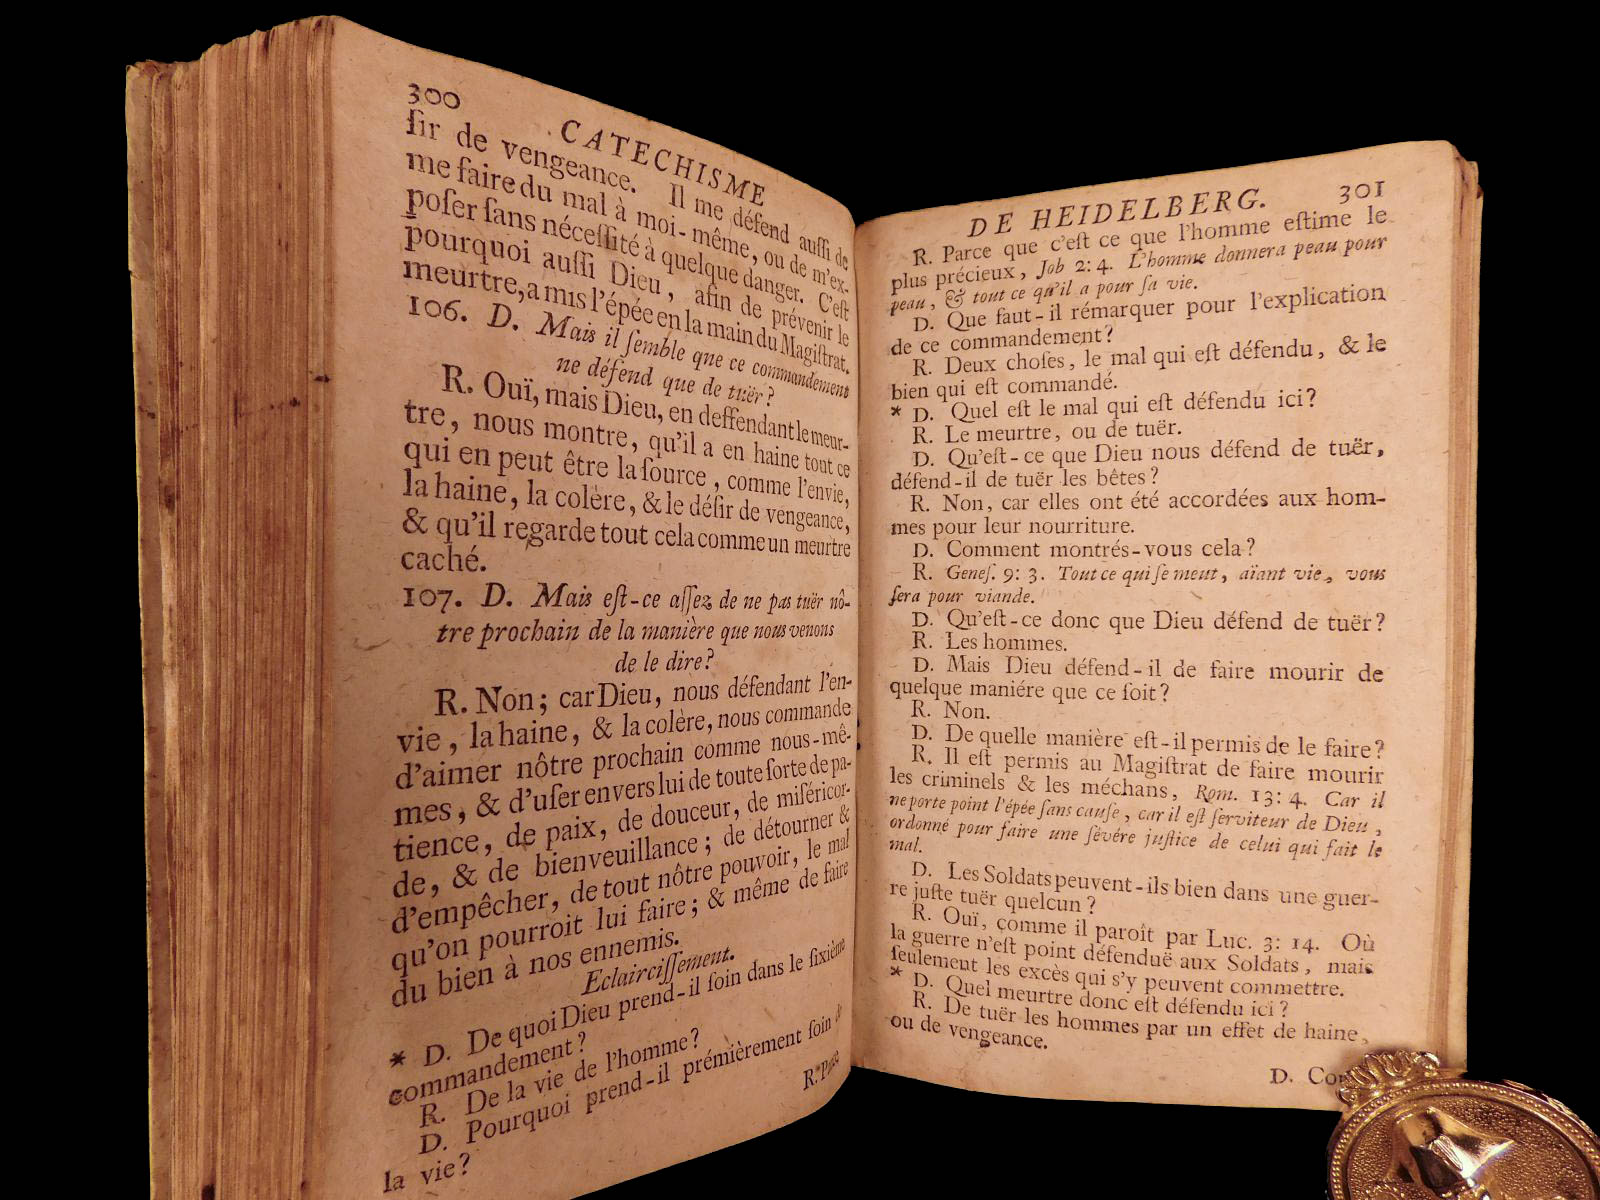 300
CATECHISME
ſir de vengeance. Il me défend auſſi de
me faire du mal à moi-même, ou de m'ex-
poſer ſans néceſſité à quelque danger. C'eſt
pourquoi auſſi Dieu, afin de prévenir le
meurtre, a mis l'épée en la main du Magiſtrat.
106. D. Mais il ſemble que ce commandement
ne défend que de tuër?
R. Ouï, mais Dieu, en deffendant le meur-
tre, nous montre, qu'il a en haine tout ce
qui en peut être la ſource, comme l'envie,
la haine, la colère, & le déſir de vengeance,
& qu'il regarde tout cela comme un meurtre
caché.
107. D. Mais eſt-ce aſſez de ne pas tuër nô-
tre prochain de la manière que nous venons
de le dire?
R. Non; car Dieu, nous défendant l'en-
vie, la haine, & la colère, nous commande
d'aimer nôtre prochain comme nous-mê-
mes, & d'uſer envers lui de toute ſorte de pa-
tience, de paix, de douceur, de miſéricor-
de, & de bienveuillance; de détourner &
d'empêcher, de tout nôtre pouvoir, le mal
qu'on pourroit lui faire; & même de faire
du bien à nos ennemis.
Eclairciſſement.
* D. De quoi Dieu prend-il ſoin dans le ſixième
commandement?
R. De la vie de l'homme?
D. Pourquoi prend-il prémièrement ſoin de
la vie?
DE HEIDELBERG. 301
R. Parce que c'eſt ce que l'homme eſtime le
plus précieux, Job 2: 4. L'homme donnera peau pour
peau, & tout ce qu'il a pour ſa vie.
D. Que faut-il rémarquer pour l'explication
de ce commandement?
R. Deux choſes, le mal qui eſt défendu, & le
bien qui eſt commandé.
* D. Quel eſt le mal qui eſt défendu ici?
R. Le meurtre, ou de tuër.
D. Qu'eſt-ce que Dieu nous défend de tuër,
défend-il de tuër les bêtes?
R. Non, car elles ont été accordées aux hom-
mes pour leur nourriture.
D. Comment montrés-vous cela?
R. Geneſ. 9: 3. Tout ce qui ſe meut, aïant vie, vous
ſera pour viande.
D. Qu'eſt-ce donc que Dieu défend de tuër?
R. Les hommes.
D. Mais Dieu défend-il de faire mourir de
quelque maniére que ce ſoit?
R. Non.
D. De quelle manière eſt-il permis de le faire?
R. Il eſt permis au Magiſtrat de faire mourir
les criminels & les méchans, Rom. 13: 4. Car il
ne porte point l'épée ſans cauſe, car il eſt ſerviteur de Dieu,
ordonné pour faire une ſévére juſtice de celui qui fait le
mal.
D. Les Soldats peuvent-ils bien dans une guer-
re juſte tuër quelcun?
R. Ouï, comme il paroît par Luc. 3: 14. Où
la guerre n'eſt point défenduë aux Soldats, mais
ſeulement les excès qui s'y peuvent commettre.
* D. Quel meurtre donc eſt défendu ici?
R. De tuër les hommes par un effet de haine,
ou de vengeance.
D.